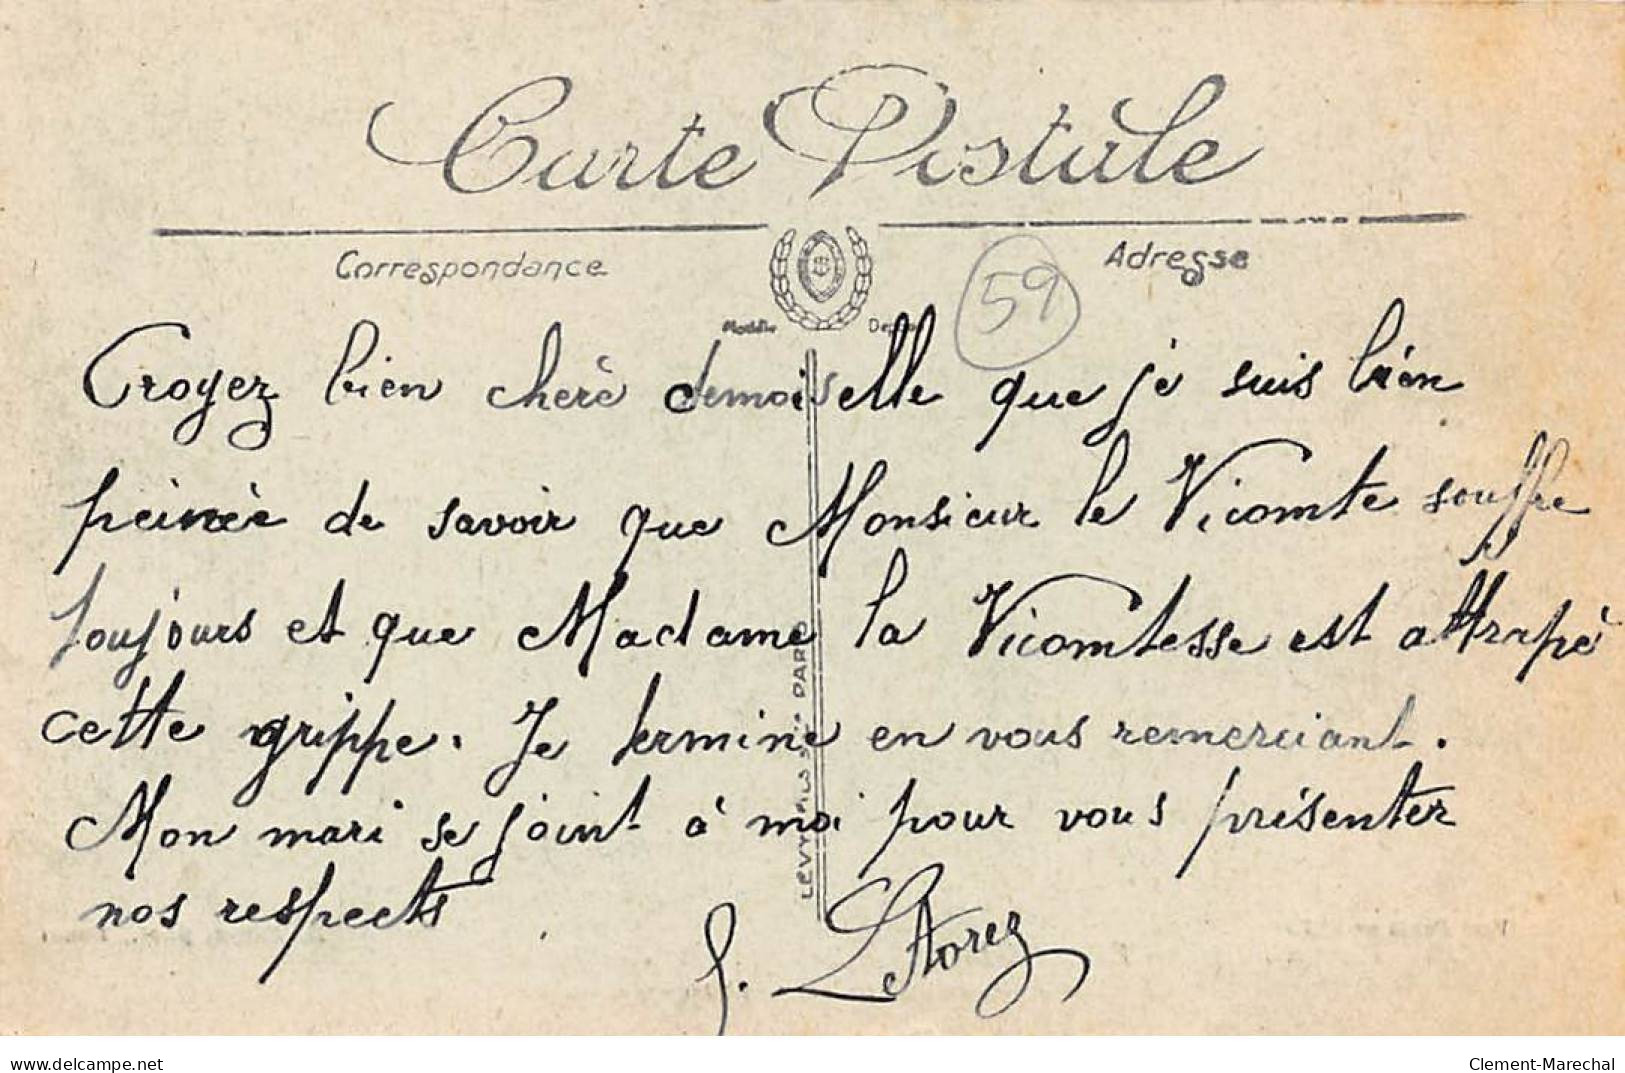 Carte Postale
Correspondance
Adresse
59
Modèle Déposé
Croyez bien cherè demoiselle que je suis bien
peinée de savoir que Monsieur le Vicomte souffre
toujours et que Madame la Vicomtesse est attrapé
cette grippe. Je termine en vous remerciant.
Mon mari se joint à moi pour vous présenter
nos respects
LEVY FILS & Cie PARIS
delcampe.net
Clement-Marechal